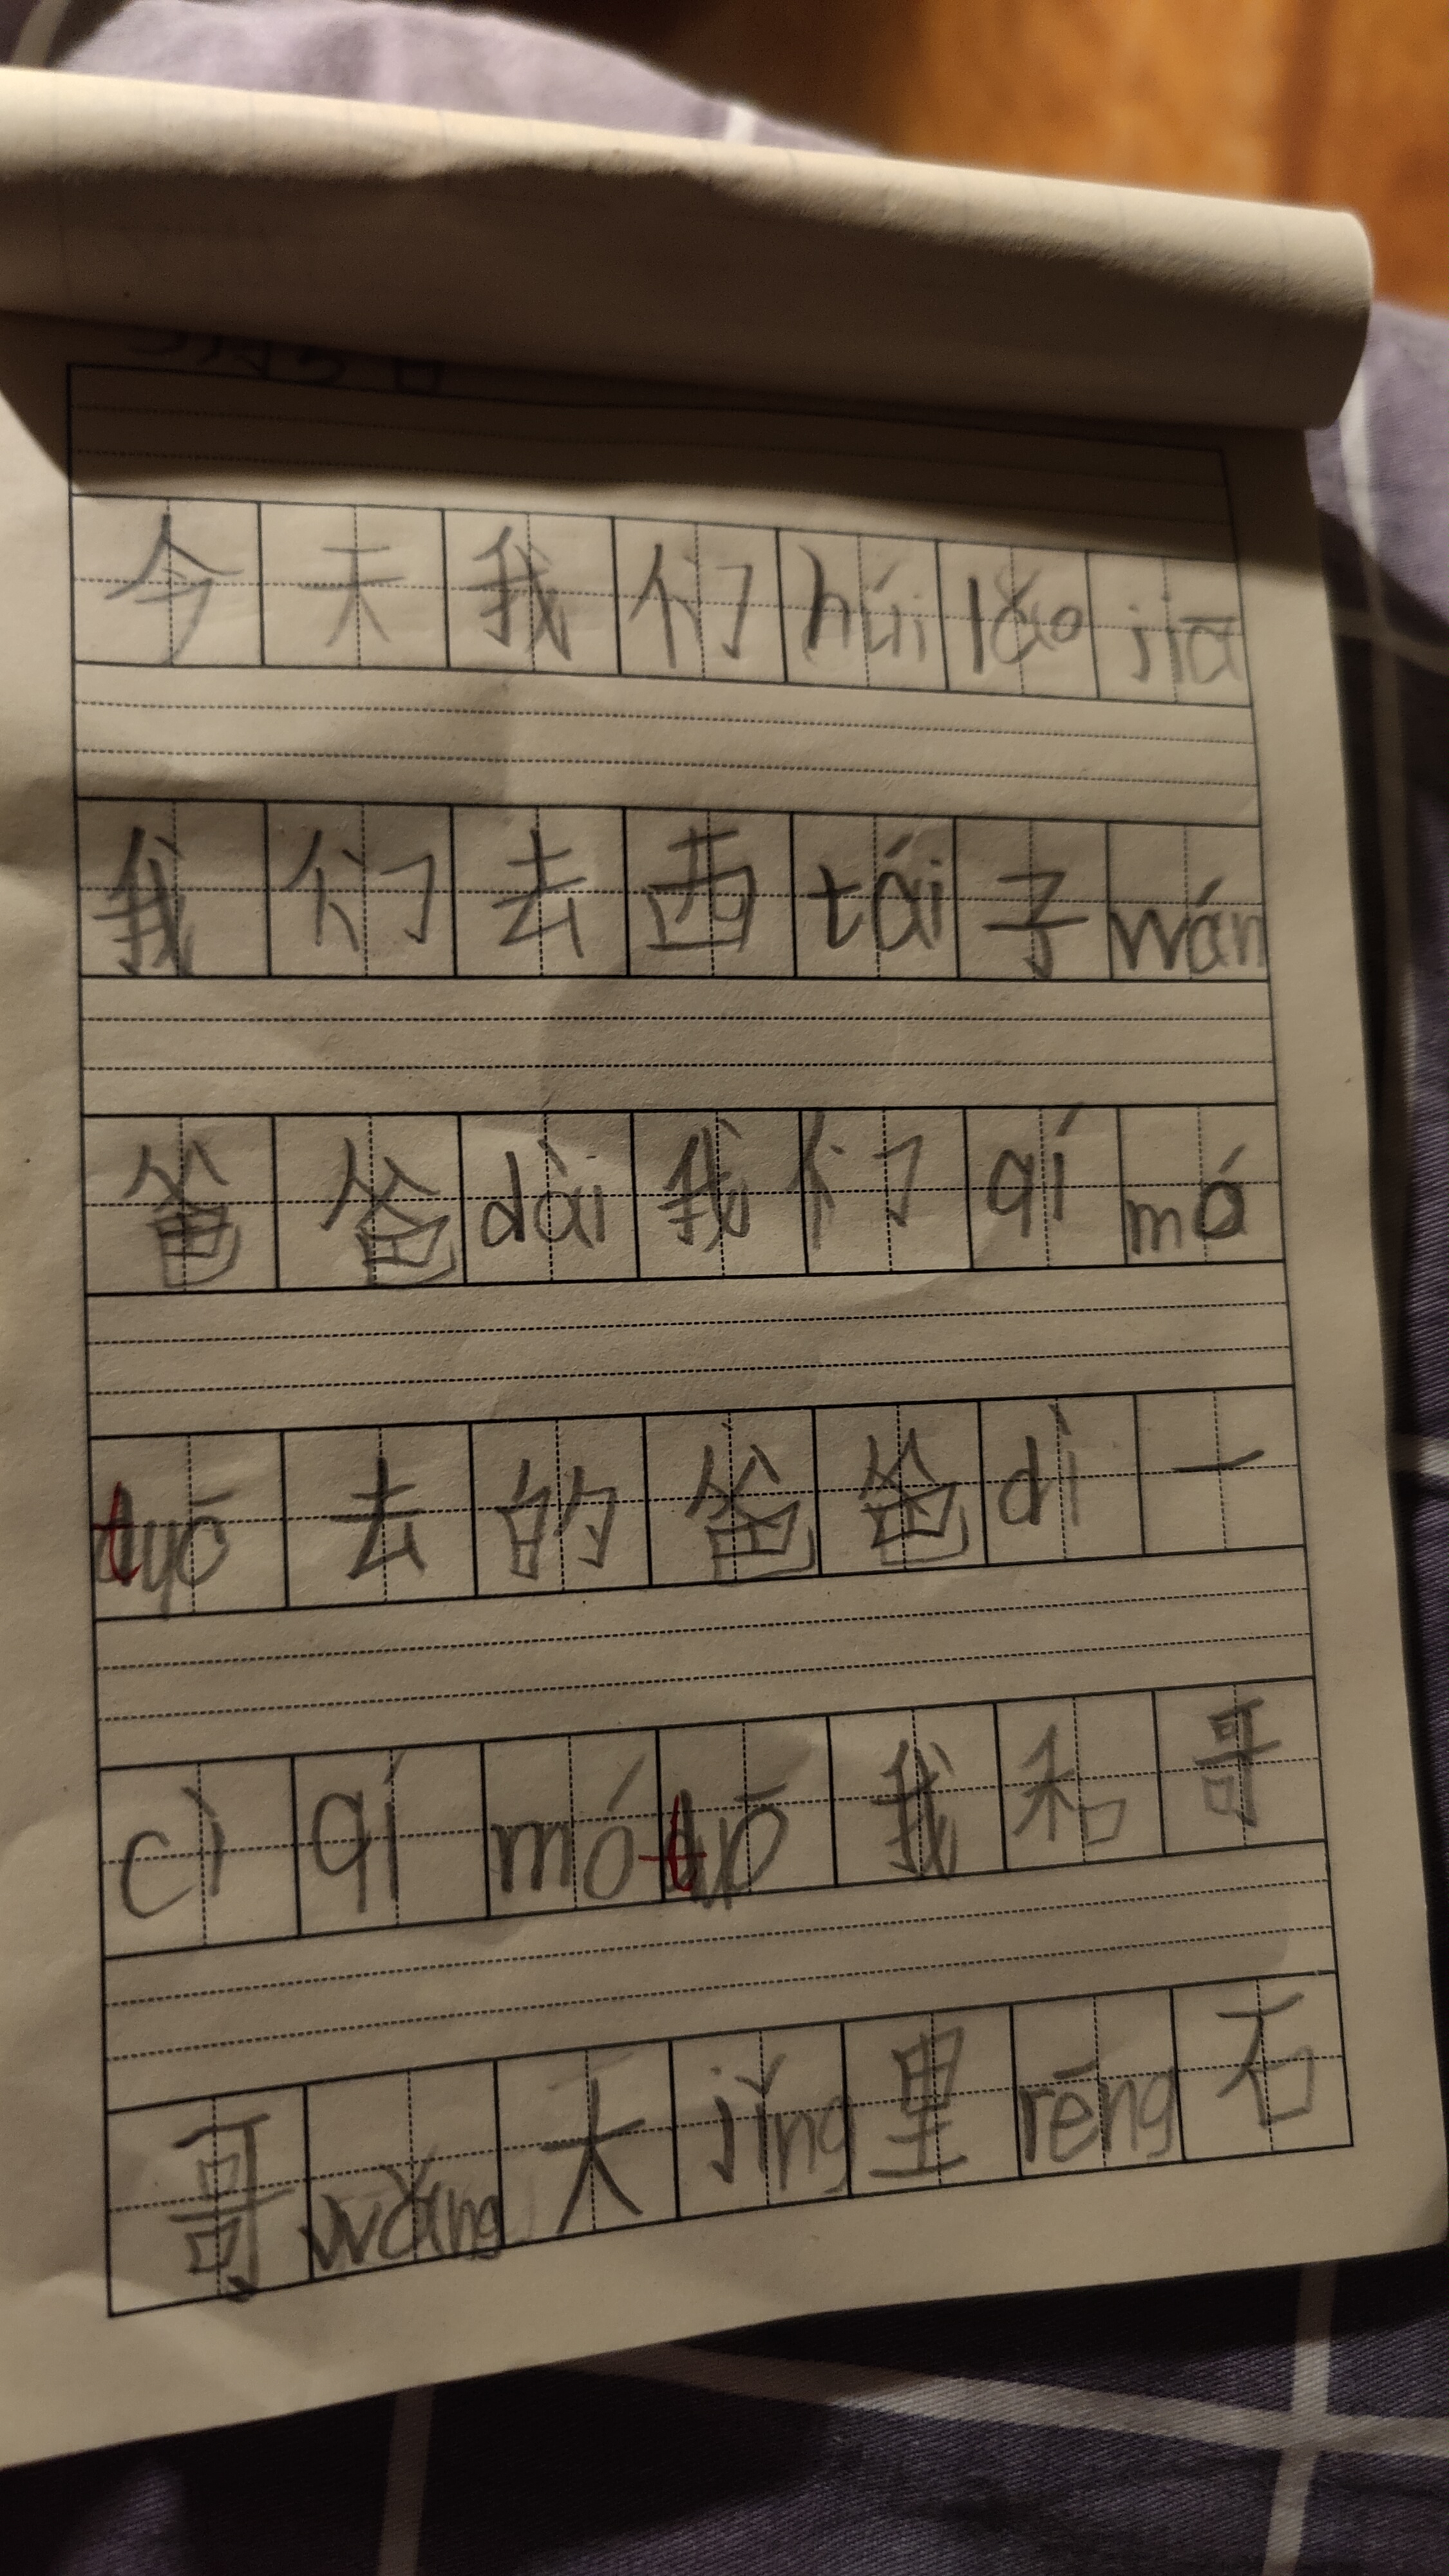 今天我们húi lǎo jiā
我们去西tái子wán
爸爸dài我们qí mó
tuō去的爸爸dì一
cì qí mó tuō我和哥
哥wǎng大jǐng里rēng石